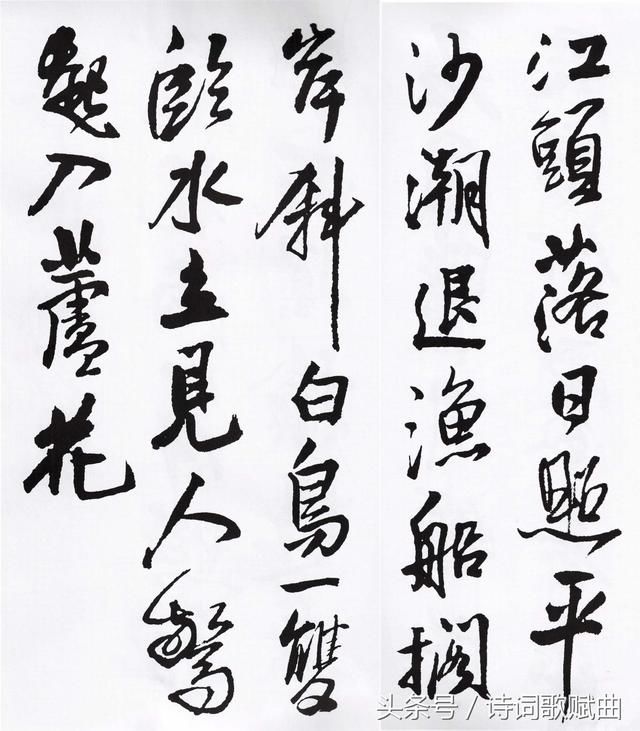 江頭落日照平
沙潮退漁船擱
岸斜白鳥一雙
臨水立見人驚
起入蘆花
头条号 / 诗词歌赋曲